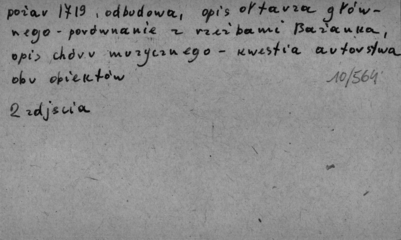 pożar 1719, odbudowa, opis ołtarza głów-
nego - porównanie z rzeźbami Bażanka,
opis chóru muzycznego - kwestia autorstwa
obu obiektów
10/564
2 zdjęcia